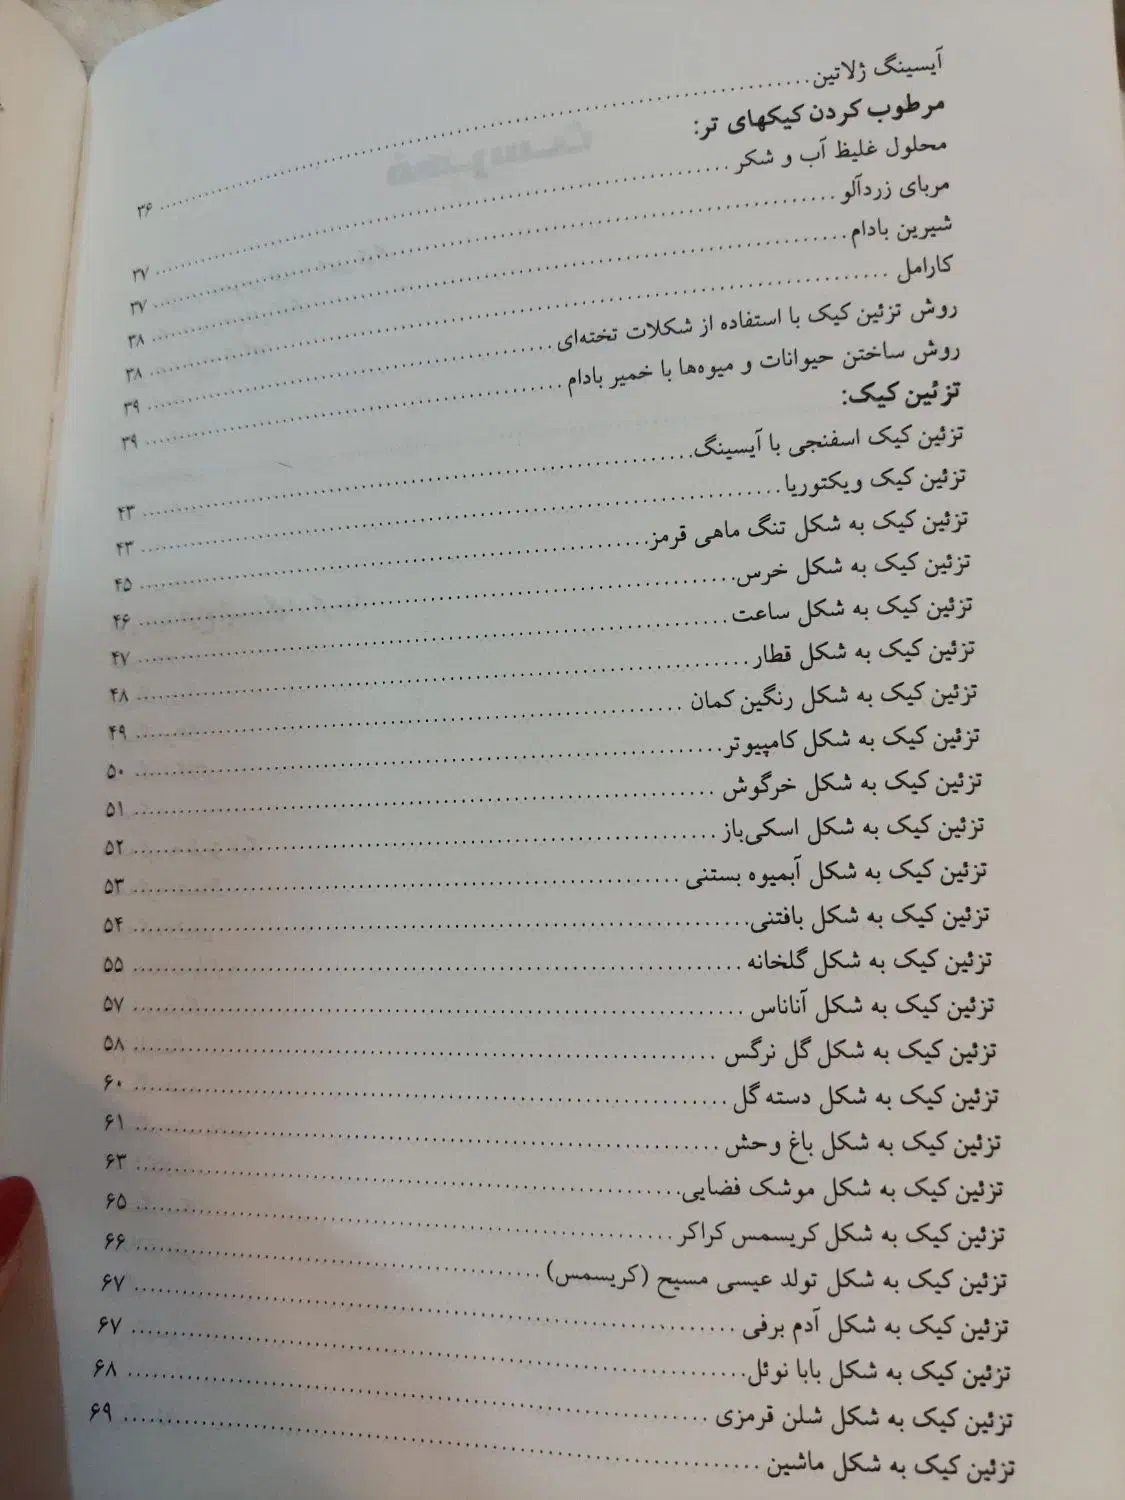 آیسینگ ژلاتین ........ ۳۶
مرطوب کردن کیکهای تر:
محلول غلیظ آب و شکر ........ ۳۷
مربای زردآلو ........ ۳۷
شیرین بادام ........ ۳۸
کارامل ........ ۳۸
روش تزئین کیک با استفاده از شکلات تخته‌ای ........ ۳۹
روش ساختن حیوانات و میوه‌ها با خمیر بادام ........ ۳۹
تزئین کیک:
تزئین کیک اسفنجی با آیسینگ ........ ۴۳
تزئین کیک ویکتوریا ........ ۴۳
تزئین کیک به شکل تنگ ماهی قرمز ........ ۴۵
تزئین کیک به شکل خرس ........ ۴۶
تزئین کیک به شکل ساعت ........ ۴۷
تزئین کیک به شکل قطار ........ ۴۸
تزئین کیک به شکل رنگین کمان ........ ۴۹
تزئین کیک به شکل کامپیوتر ........ ۵۰
تزئین کیک به شکل خرگوش ........ ۵۱
تزئین کیک به شکل اسکی‌باز ........ ۵۲
تزئین کیک به شکل آبمیوه بستنی ........ ۵۳
تزئین کیک به شکل بافتنی ........ ۵۴
تزئین کیک به شکل گلخانه ........ ۵۵
تزئین کیک به شکل آناناس ........ ۵۷
تزئین کیک به شکل گل نرگس ........ ۵۸
تزئین کیک به شکل دسته گل ........ ۶۰
تزئین کیک به شکل باغ وحش ........ ۶۱
تزئین کیک به شکل موشک فضایی ........ ۶۳
تزئین کیک به شکل کریسمس کراکر ........ ۶۵
تزئین کیک به شکل تولد عیسی مسیح (کریسمس) ........ ۶۶
تزئین کیک به شکل آدم برفی ........ ۶۷
تزئین کیک به شکل بابا نوئل ........ ۶۷
تزئین کیک به شکل شلن قرمزی ........ ۶۸
تزئین کیک به شکل ماشین ........ ۶۹